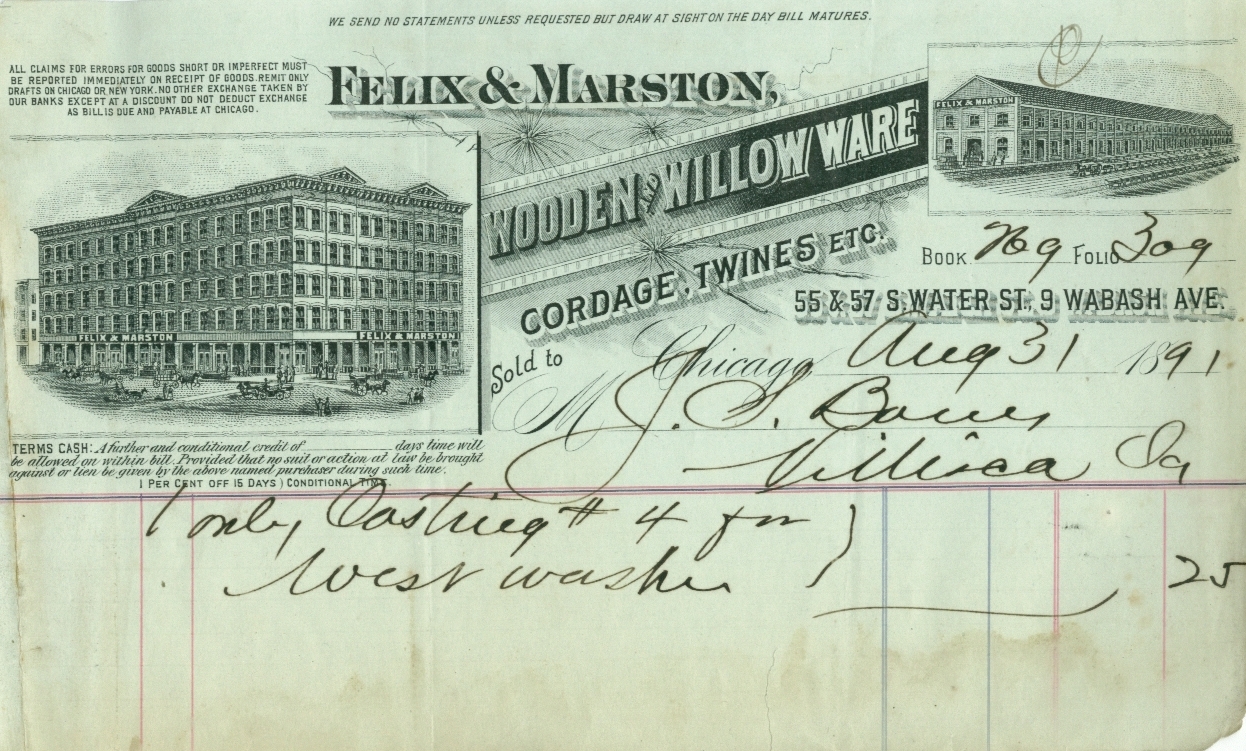 WE SEND NO STATEMENTS UNLESS REQUESTED BUT DRAW AT SIGHT ON THE DAY BILL MATURES.
ALL CLAIMS FOR ERRORS FOR GOODS SHORT OR IMPERFECT MUST
BE REPORTED IMMEDIATELY ON RECEIPT OF GOODS. REMIT ONLY
DRAFTS ON CHICAGO OR NEW YORK. NO OTHER EXCHANGE TAKEN BY
OUR BANKS EXCEPT AT A DISCOUNT DO NOT DEDUCT EXCHANGE
AS BILL IS DUE AND PAYABLE AT CHICAGO.
FELIX & MARSTON,
WOODEN AND WILLOW WARE
CORDAGE, TWINES ETC.
FELIX & MARSTON
FELIX & MARSTON
FELIX & MARSTON
BOOK FOLIO 309
55 & 57 S. WATER ST. 9 WABASH AVE.
Chicago Aug 31 1891
Sold to
M J. S. Bowers
Villisca Ia
TERMS CASH: A further and conditional credit of days time will
be allowed on within bill. Provided that no suit or action at law be brought
against or lien be given by the above named purchaser during such time.
1 PER CENT OFF 15 DAYS) CONDITIONAL TIME.
1 only Casting # 4 for }
West washer 25